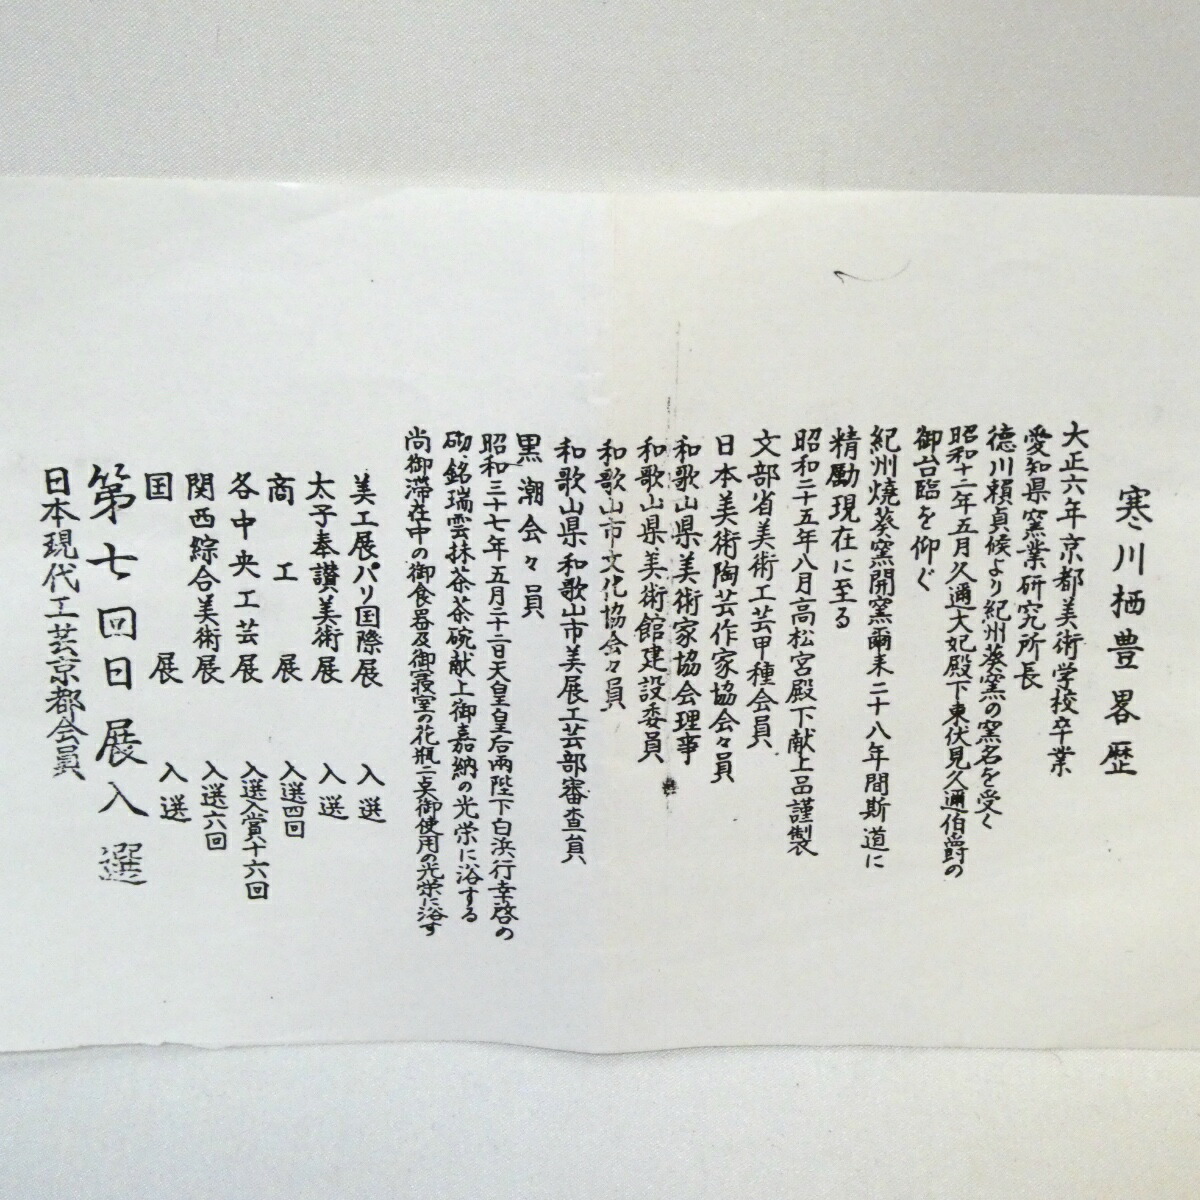 寒川栖豊畧歴
大正六年京都美術学校卒業
愛知県窯業研究所長
徳川頼貞候より紀州葵窯の窯名を受く
昭和十二年五月久邇大妃殿下東伏見久邇伯爵の
御台臨を仰ぐ
紀州焼葵窯開窯爾来二十八年間斯道に
精励現在に至る
昭和二十五年八月高松宮殿下献上品謹製
文部省美術工芸甲種会員
日本美術陶芸作家協会々員
和歌山県美術家協会理事
和歌山県美術館建設委員
和歌山市文化協会々員
和歌山県和歌山市美展工芸部審査員
黒潮会々員
昭和三十七年五月二十二日天皇皇后両陛下白浜行幸啓の
砌銘瑞雲抹茶茶碗献上御嘉納の光栄に浴する
尚御滞在中の御食器及御寝室の花瓶二点御使用の光栄に浴す
美工展パリ国際展 入選
太子奉讃美術展 入選
商工展 入選四回
各中央工芸展 入選入賞十六回
関西綜合美術展 入選六回
国展 入選
第七回日展入選
日本現代工芸京都会員